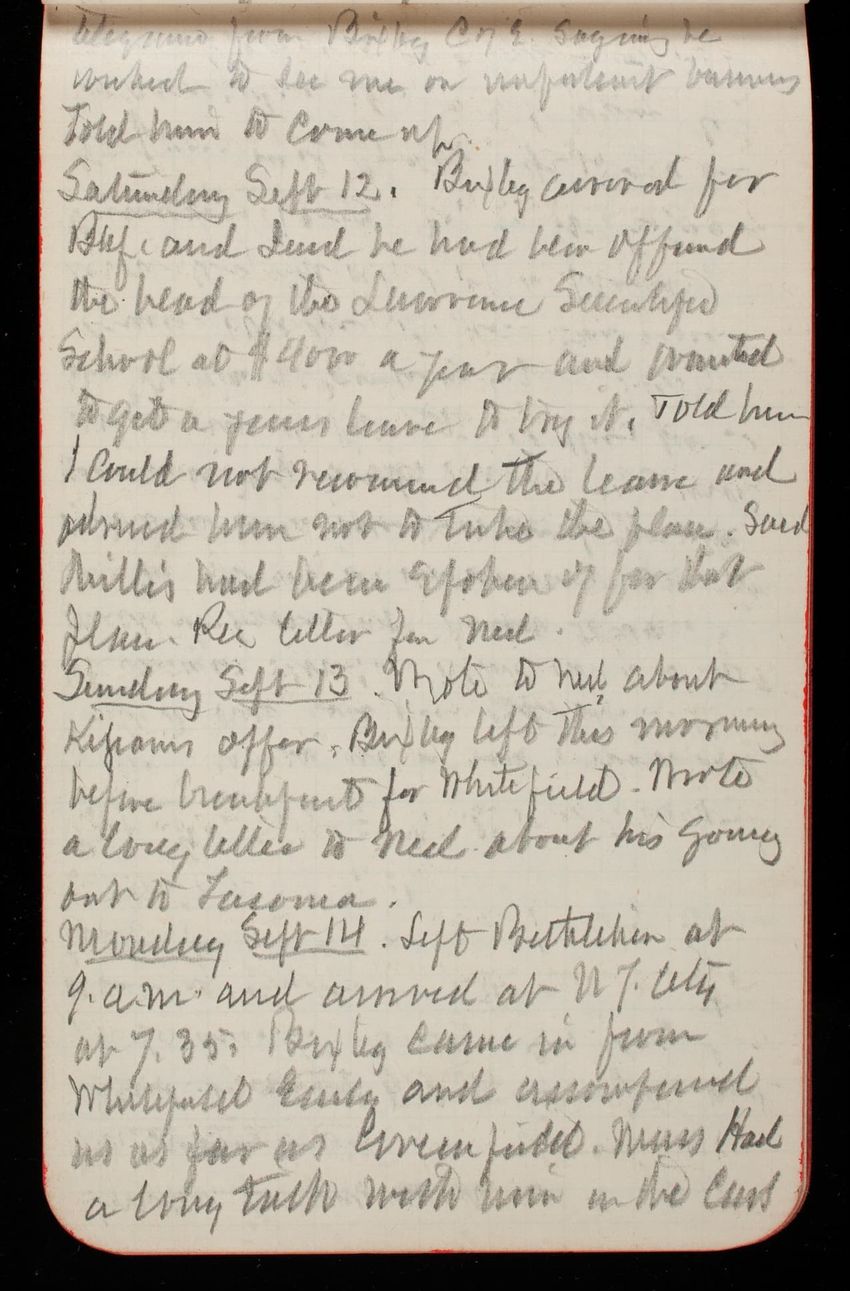 telegram from Bixby C of E. saying he
wished to see me on important business
Told him to come up.
Saturday Sept 12. Bixby arrived for
Bkf. and said he had been offered
the head of the Lawrence Scientific
School at $4000 a year and wanted
to get a years leave to try it. Told him
I could not recommend the leave and
advised him not to take the place. Said
Millis had been spoken of for that
place. Rec letter for Ned.
Sunday Sept 13. Wrote to Ned about
offer. Bixby left this morning
before breakfast for Whitefield. Wrote
a long letter to Ned about his going
out to Tacoma.
Monday Sept 14. Left Bethlehem at
9. a.m. and arrived at N Y. City
at 7.35. Bixby came in from
Whitefield early and accompanied
us as far as Greenfield. Mass Had
a long talk with him in the Cars